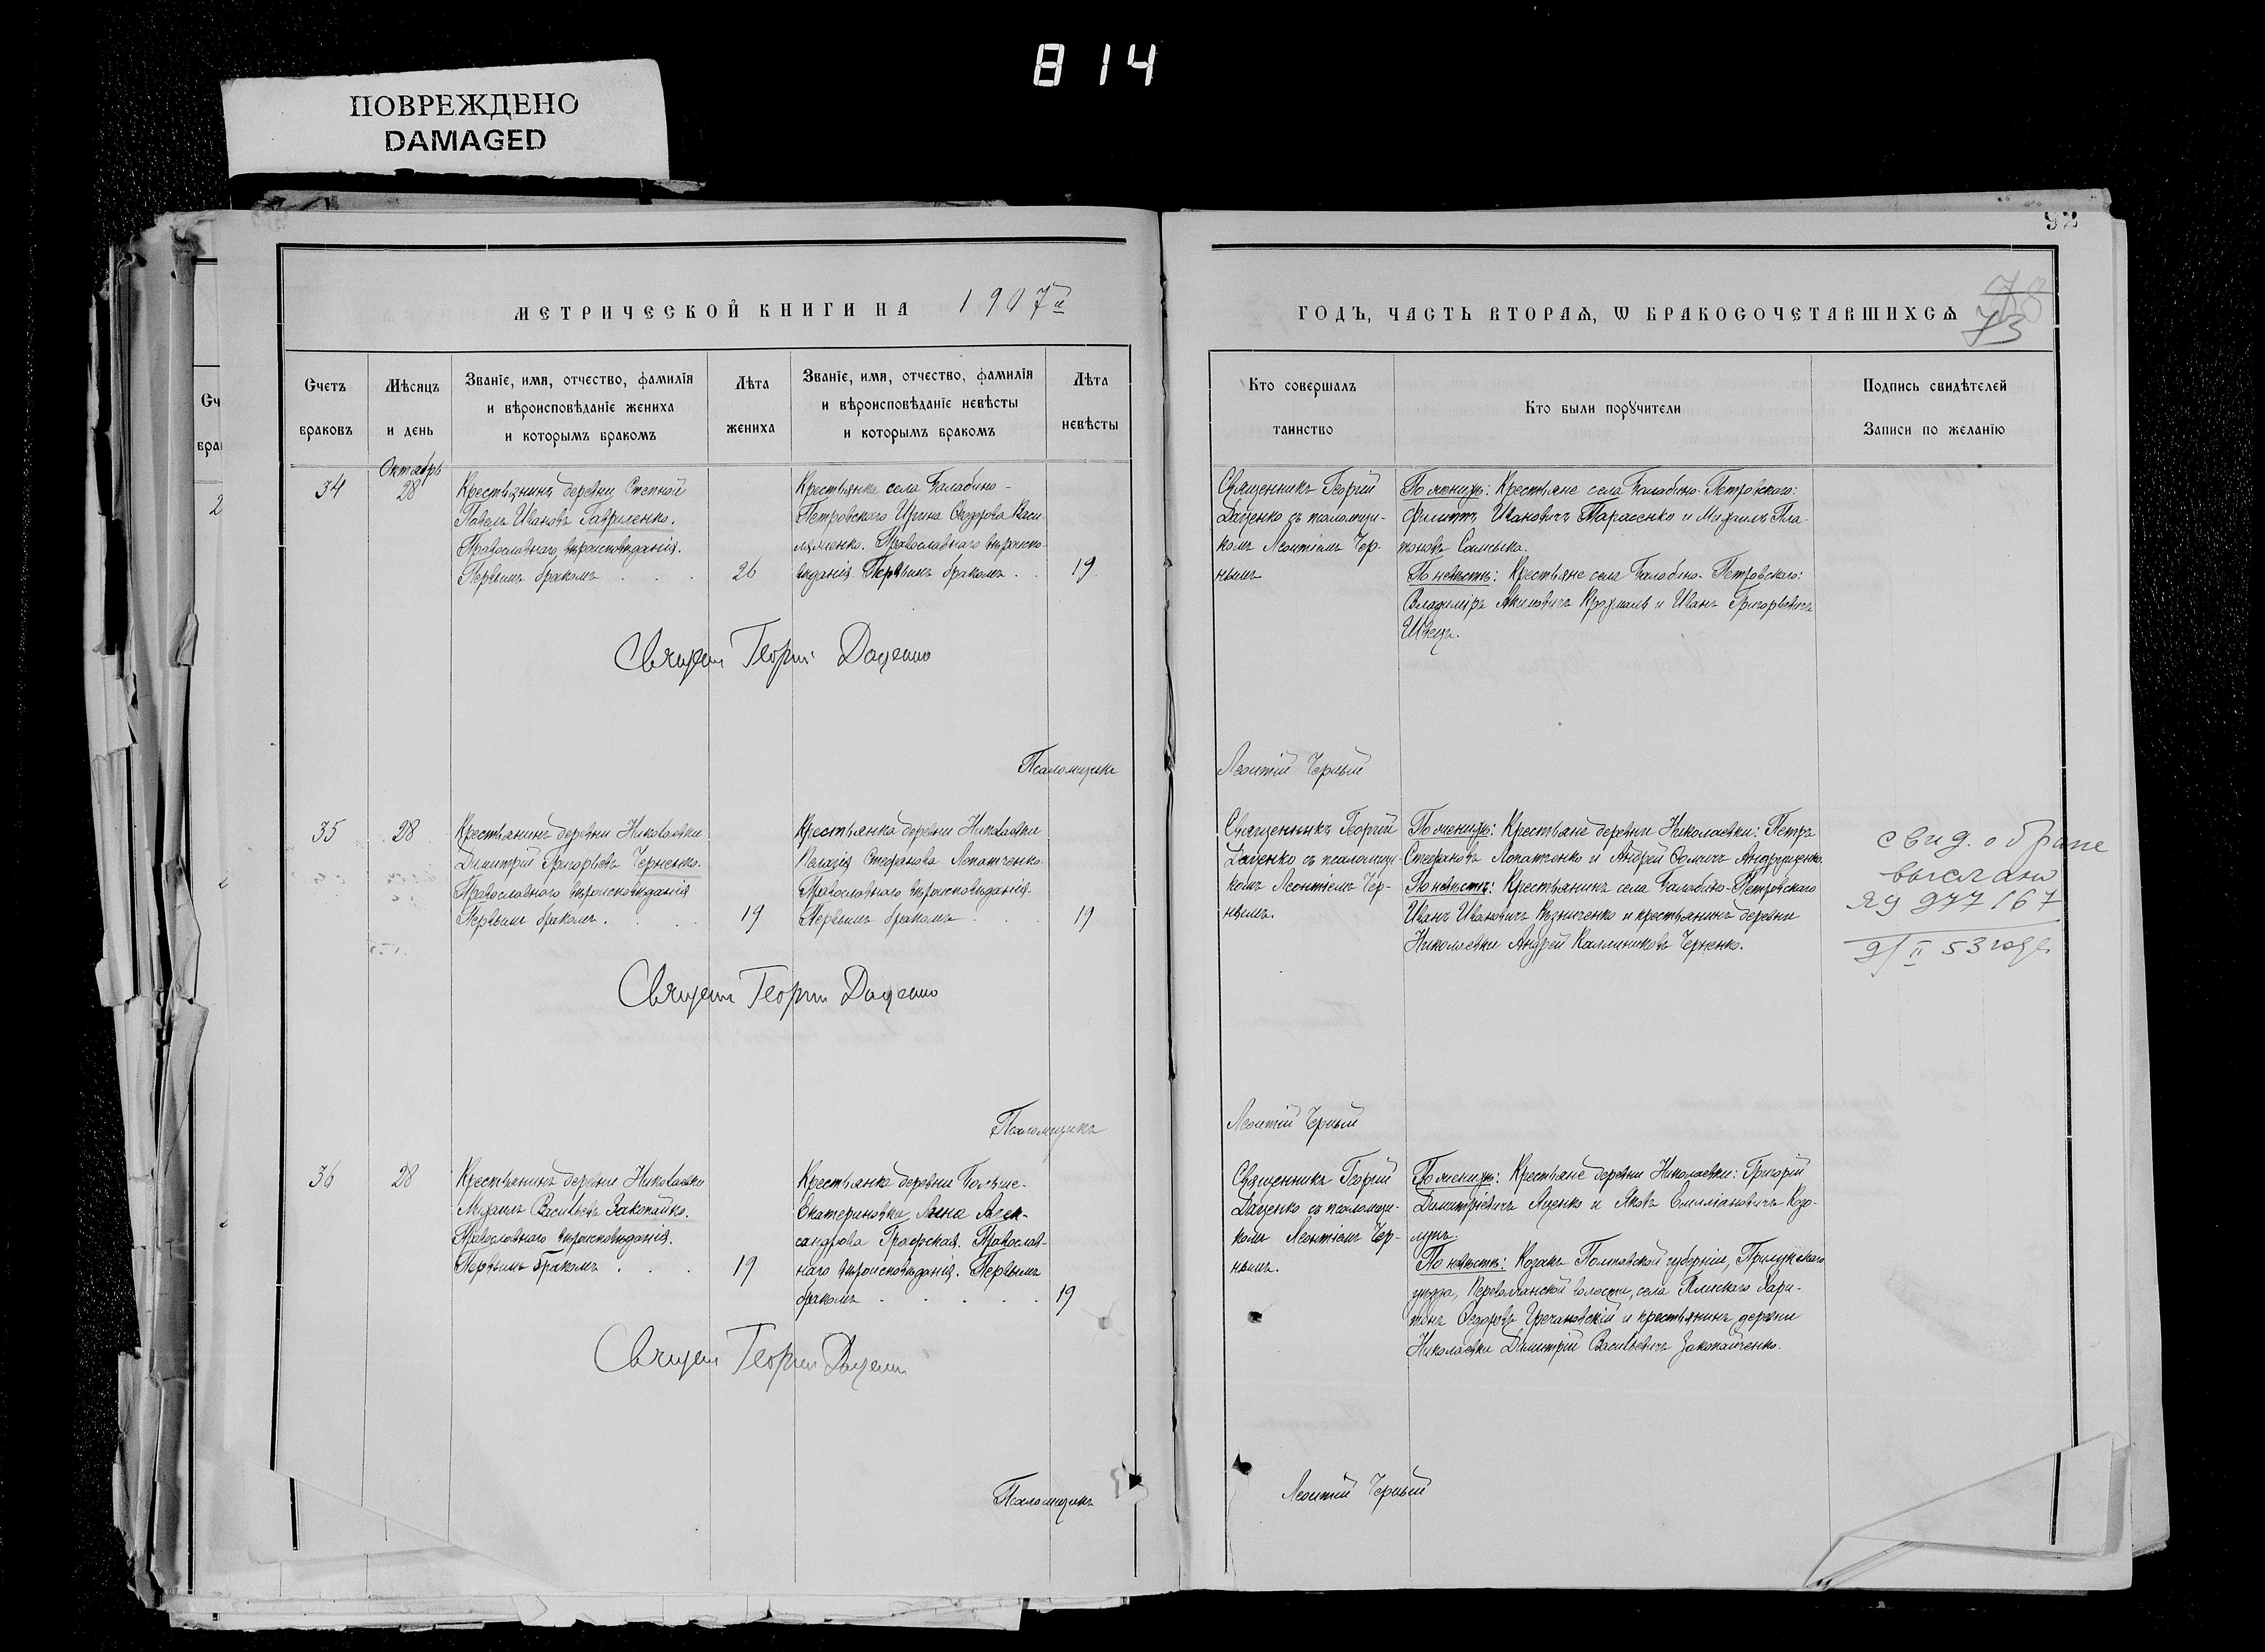 814
ПОВРЕЖДЕНО
DAMAGED
92
МЕТРИЧЕСКОЙ КНИГИ НА 1907й
ГОДЪ, ЧАСТЬ ВТОРАѦ, Ѡ БРАКОСОЧЕТАВШИХСѦ
73
Счетъ
браковъ
Мѣсяцъ
и день
Званіе, имя, отчество, фамилія
и вѣроисповѣданіе жениха
и которымъ бракомъ
Лѣта
жениха
Званіе, имя, отчество, фамилія
и вѣроисповѣданіе невѣсты
и которымъ бракомъ
Лѣта
невѣсты
Кто совершалъ
таинство
Кто были поручители
Подпись свидѣтелей
Записи по желанію
Октябрь
34
28
Крестьянинъ деревни Степной
Павелъ Ивановъ Гавриленко.
Православнаго вѣроисповѣданія.
Первымъ бракомъ . . .
26
Крестьянка села Балабино-
Петровскаго Ирина Ѳедорова Васи-
ляменко. Православнаго вѣроиспо-
вѣданія. Первымъ бракомъ . .
19
Священникъ Георгій
Даценко съ псаломщи-
комъ Леонтіемъ Чер-
нымъ
По женихѣ: Крестьяне села Балабино-Петровскаго:
Филиппъ Ивановичъ Тарасенко и Михаилъ Пла-
тоновъ Самсыка.
По невѣстѣ: Крестьяне села Балабино-Петровскаго:
Владиміръ Акимовичъ Крохмаль и Иванъ Григорьевичъ
Швецъ.
Священ Георгій Даценко
Псаломщикъ
Леонтій Черный
35
28
Крестьянинъ деревни Николаевки
Димитрій Григорьевъ Черненко.
Православнаго вѣроисповѣданія
Первымъ бракомъ . . .
19
Крестьянка деревни Николаевки
Пелагія Стефанова Лопатченко.
Православнаго вѣроисповѣданія.
Первымъ бракомъ . . .
19
Священникъ Георгій
Даценко съ псаломщи-
комъ Леонтіемъ Чер-
нымъ.
По женихѣ: Крестьяне деревни Николаевки: Петръ
Стефановъ Лопатченко и Андрей Ѳомичъ Андрущенко.
По невѣстѣ: Крестьянинъ села Балабино-Петровскаго
Иванъ Ивановичъ Кузниченко и крестьянинъ деревни
Николаевки Андрей Каллиниковъ Черненко.
свид. о браке
выслано
ЯУ 977167
9/II 53 года
Священ Георгій Даценко
Псаломщикъ
Леонтій Черный
36
28
Крестьянинъ деревни Николаевки
Михаилъ Васильевъ Закопайко.
Православнаго вѣроисповѣданія.
Первымъ бракомъ . . .
19
Крестьянка деревни Больше-
Екатериновки Анна Алек-
сандрова Графская. Православ-
наго вѣроисповѣданія. Первымъ
бракомъ . . . . .
19
Священникъ Георгій
Даценко съ псаломщи-
комъ Леонтіемъ Чер-
нымъ.
По женихѣ: Крестьяне деревни Николаевки: Григорій
Димитріевичъ Яценко и Яковъ Емиліановичъ
По невѣстѣ: Козакъ Полтавской губерніи, Прилукскаго
уѣзда, Переволчанской волости, села Плискаго Хари-
тонъ Ѳедоровъ Гречановскій и крестьянинъ деревни
Николаевки Димитрій Васильевичъ Закопайченко.
Священ Георгій Даценко
Псаломщикъ
Леонтій Черный